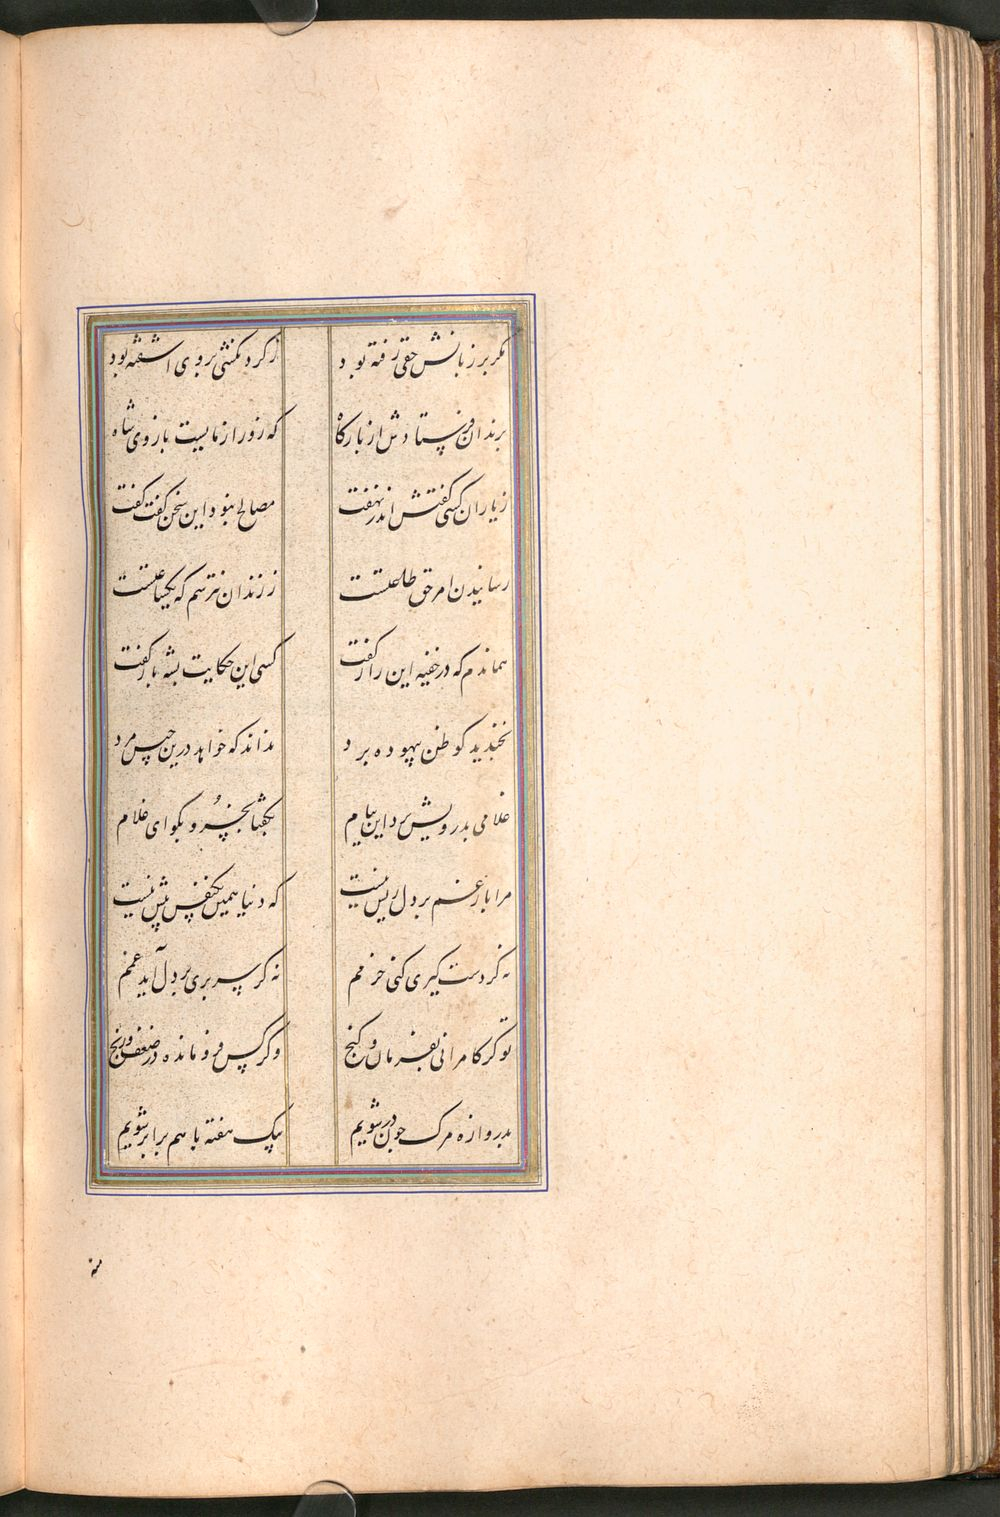 مکر بر زبانش حقی رفته بود ز کردنکشی بر وی آشفته بود
بزندان فرستادش از بارکاه که زورآزمایست بازوی شاه
ز یاران کسی کفتش اندر نهفت مصالح نبود این سخن کفت کفت
رسانیدن امر حق طاعتست ز زندان نترسم که یکساعتست
هماندم که در خفیه این راز کفت کسی این حکایت بشه باز کفت
بخندید کو ظن بیهوده برد نداند که خواهد درین حبس مرد
غلامی بدرویش برد این پیام بکفتا بخسرو بکو ای غلام
مرا بار غم بر دل ریش نیست که دنیا همین یکنفس بیش نیست
نه کر دست کیری کنی خرمم نه کر سر بری بر دل آید غمم
تو کر کامرانی بفرمان و کنج و کر کس فرومانده در ضعف و رنج
بدروازه مرک چون در شویم بیک هفته با هم برابر شویم
منه